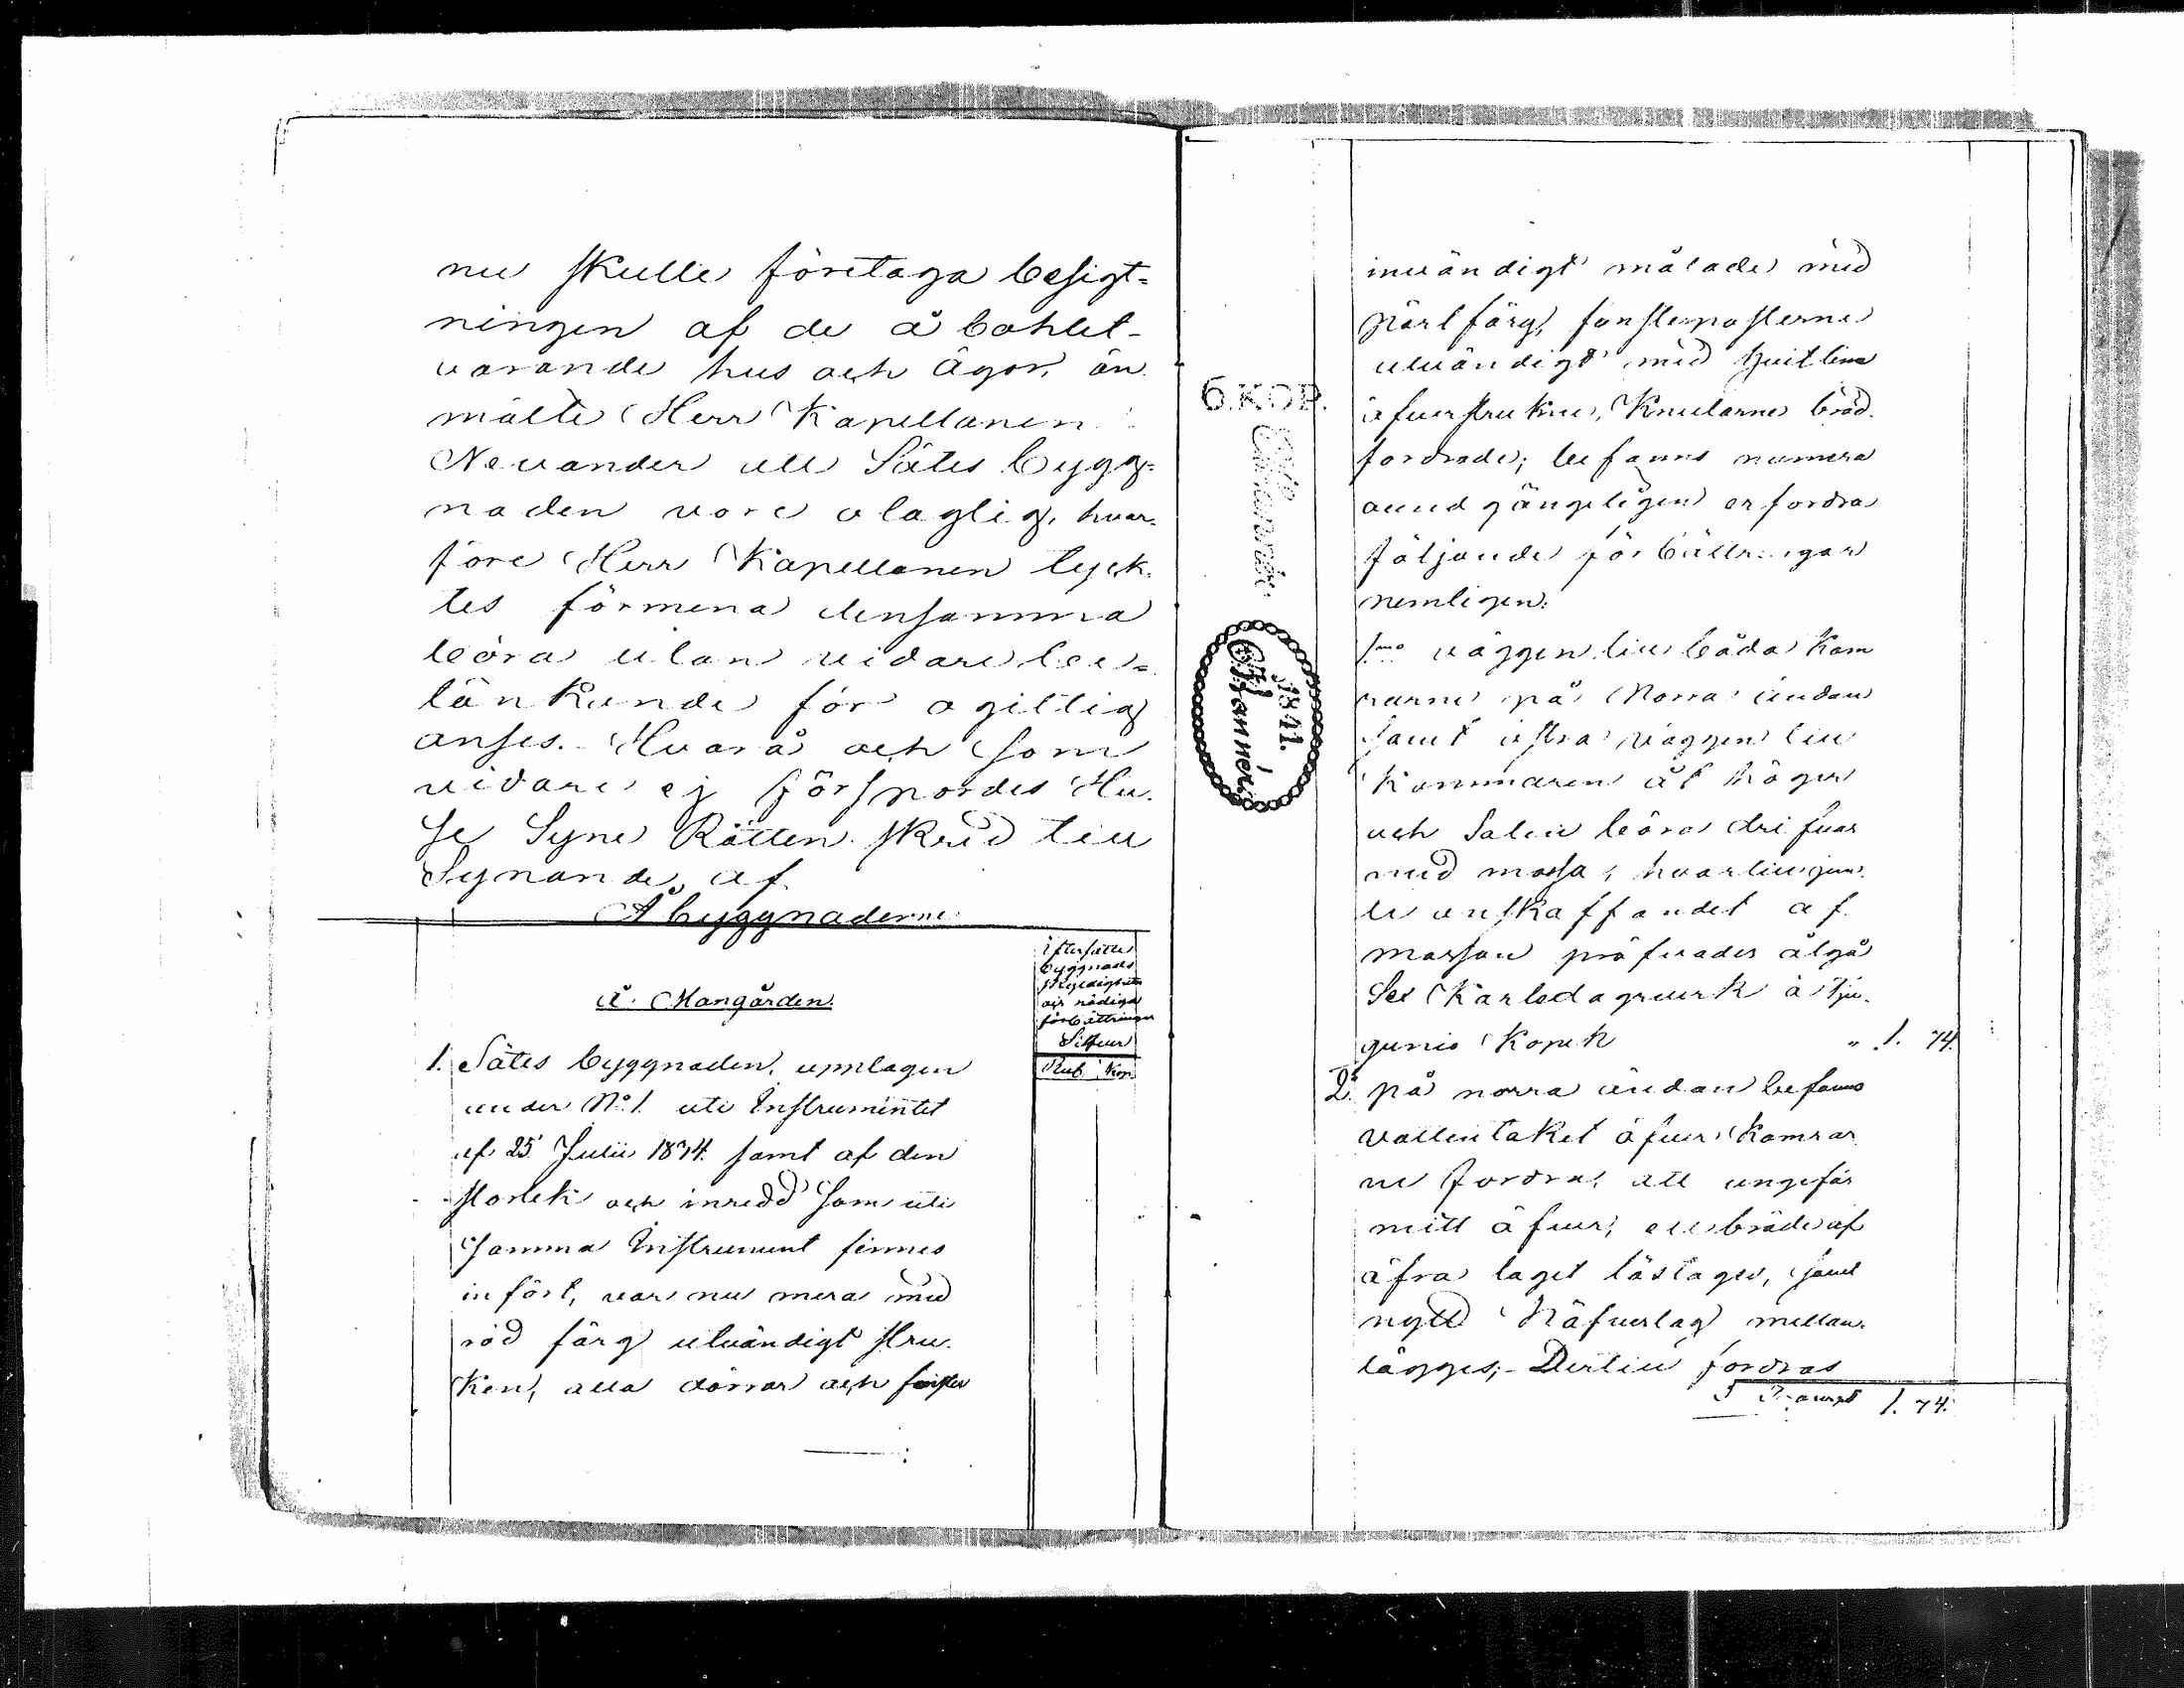 nu skulle företaga besigt-
ningen af de å bohlet
varande hus och Ägor, än
mälte Herr Kapellanen
Nevander att Sätes bygg-
naden vore olaglig, hvar-
före Herr Kapellanen tyck-
tes förmena densamma
böra utan vidare be-
tänkande för ogillig
anses. Hvarå och som
vidare ej förspordes Hu-
se Syne Rätten skred till
Synande af
Åbyggnaderne
Å Mangården.
Eftersatte
byggnads
skyldigheter
och nödiga
förbättringar
Silfver
Rub Kop.
1. Sätes byggnaden, upptagen
under No 1. uti Instrumentet
af 25 Julii 1834. samt af den
storlek och inredd som uti
samma Instrument finnes
infört, var nu mera med
röd färg utvändigt stru-
ken, alla dörrar och fönster
6.KOP.
1841.
invändigt målade med
pärlfärg, fönsterposterne
utvändigt med hvitlim
öfverstrukne, Knutarne bräd-
fordrade; befanns numera
oundgängeligen erfordra
följande förbättringar
nemligen:
1mo väggen till båda Kam
rarne på Norra ändan
samt östra väggen till
Kammaren åt höger
och Salen böra drifvas
med mossa, hvartill jem-
te anskaffandet af
mossan pröfvades åtgå
Sex Karlsdagsverk à tju-
gunio Kopek " 1. 74.
2o på norra ändan befanns
vattentaket öfver Kamrar
ne fordra, att ungefär
mitt öfver, ett bräde af
öfra laget löstages, samt
nytt Näfverlag mellan-
lägges; Dertill fordras
Transport 1. 74.